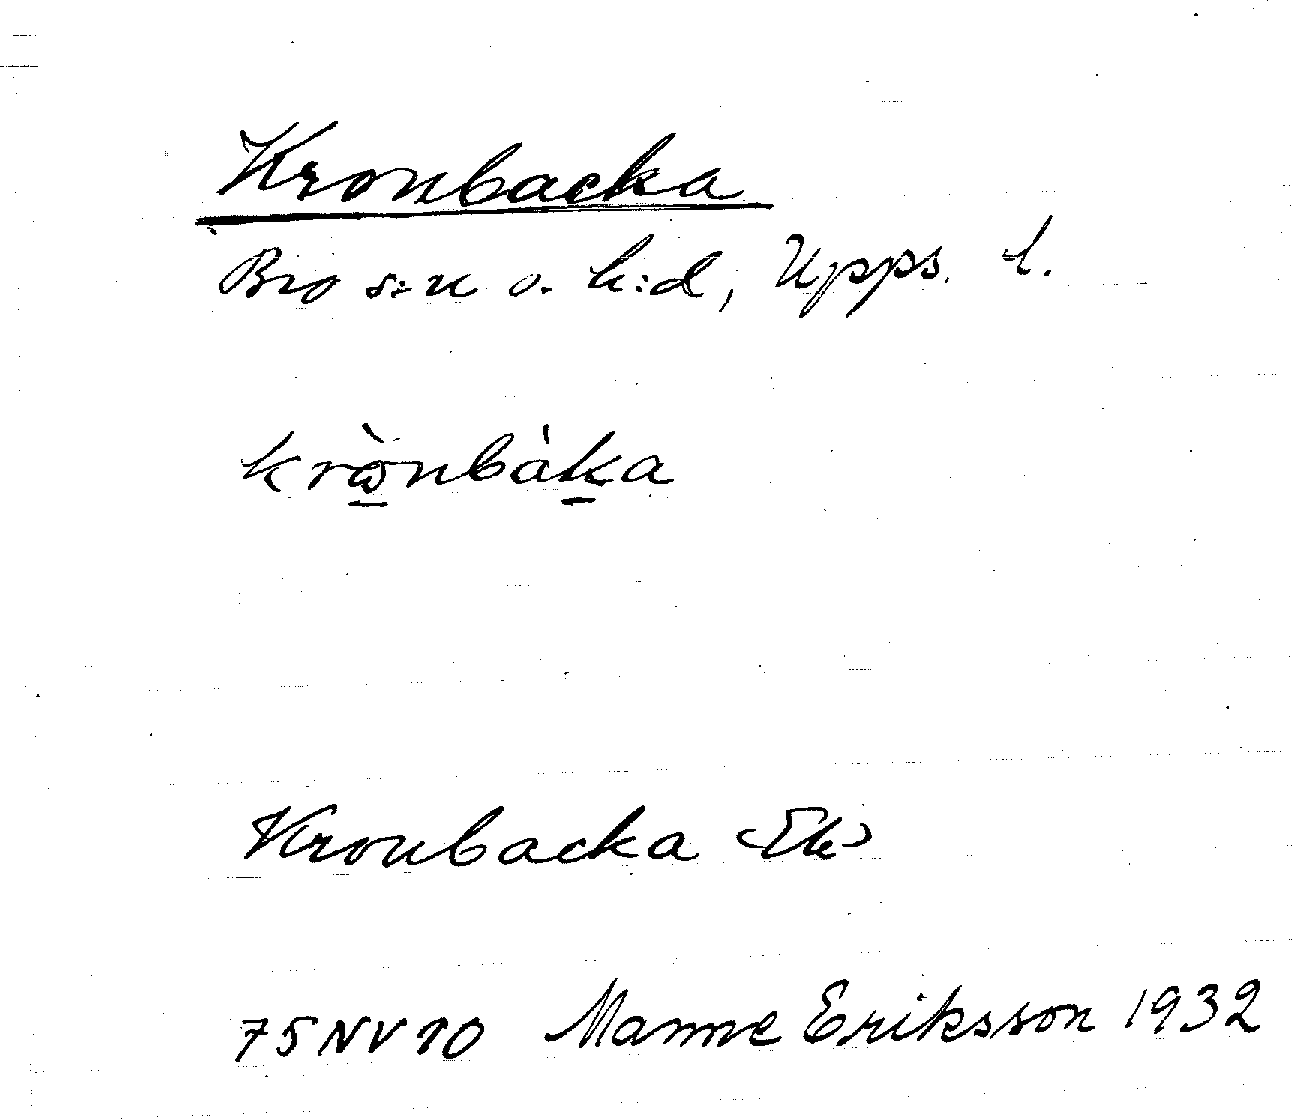 Kronbacka
Bro s:n o. h:d, Upps. l.
krὼnbàka
Kronbacka Ek
75 NV 10 Manne Eriksson 1932